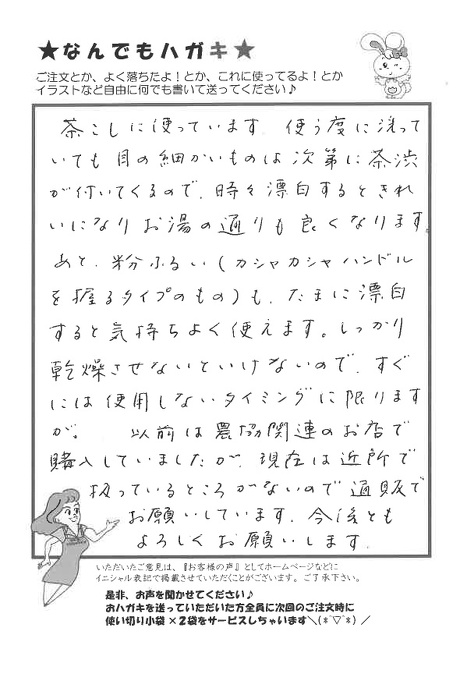 ★なんでもハガキ★
ご注文とか、よく落ちたよ！とか、これに使ってるよ！とか
イラストなど自由に何でも書いて送ってください♪
茶こしに使っています。使う度に洗って
いても目の細かいものは次第に茶渋
が付いてくるので、時々漂白するときれ
いになりお湯の通りも良くなります。
あと、粉ふるい（カシャカシャハンドル
を握るタイプのもの）も、たまに漂白
すると気持ちよく使えます。しっかり
乾燥させないといけないので、すぐ
には使用しないタイミングに限ります
が。　以前は農協関連のお店で
購入していましたが、現在は近所で
扱っているところがないので通販で
お願いしています。今後とも
よろしくお願いします。
いただいたご意見は、『お客様の声』としてホームページなどに
イニシャル表記で掲載させていただくことがございます。ご了承下さい。
是非、お声を聞かせてください♪
おハガキを送っていただいた方全員に次回のご注文時に
使い切り小袋×２袋をサービスしちゃいます＼(*ﾟ▽ﾟ*)／